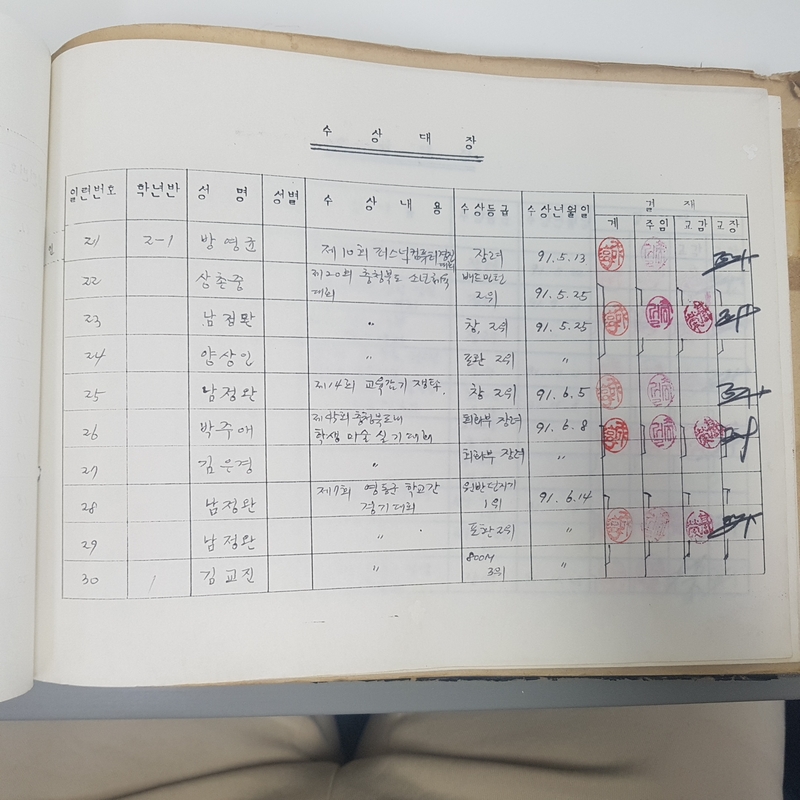 수 상 대 장
일련번호 학년반 성 명 성별 수 상 내 용 수상등급 수상년월일 결 재
계 주임 교감 교장
21 2-1 방영균 제10회 장려 91.5.13
22 상촌중 제20회 충청북도 소년체육 배드민턴
대회 2위 91.5.25
23 남정완 〃 창, 2위 91.5.25
24 양상인 〃 포환 2위 〃
25 남정완 제14회 교육감기 쟁탈. 창 2위 91.6.5
26 박주애 제45회 충청북도내 회화부 장려 91.6.8
학생 미술 실기대회
27 김은경 〃 회화부 장려 〃
28 남정완 제7회 영동군 학교간 원반던지기 91.6.14
경기대회 1위
29 남정완 〃 포환 2위 〃
30 / 김교진 〃 800M
3위 〃